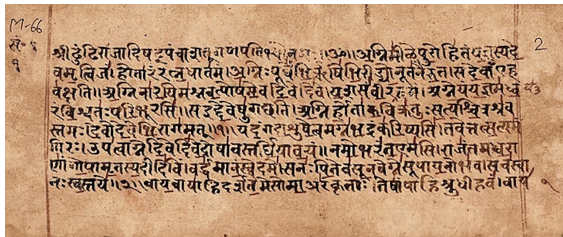 M-66
2
श्री अग्निमीळेपुरोहितंयज्ञस्यदे
वमृत्विजं।होतारंरत्नधातमं।अग्निःपूर्वेभिर्ऋषिभिरीड्योनूतनैरुत।सदेवाँएह
वक्षति।अग्निनारयिमश्नवत्पोषमेवदिवेदिवे।यशसंवीरवत्तमं।अग्नेयंयज्ञमध्व
रंविश्वतःपरिभूरसि॥सइद्देवेषुगच्छति।अग्निर्होताकविक्रतुःसत्यश्चित्रश्रव
स्तमः।देवोदेवेभिरागमत्॥१॥यदंगदाशुषेत्वमग्नेभद्रंकरिष्यसि।तवेत्तत्सत्यमं
गिरः।उपत्वाग्नेदिवेदिवेदोषावस्तर्धियावयं।नमोभरंतएमसि।राजंतमध्वरा
णांगोपामृतस्यदीदिविं।वर्द्धमानंस्वेदमे।सनःपितेवसूनवेग्नेसूपायनोभव।सचस्वा
नःस्वस्तये॥२॥वायवायाहिदर्शतेमेसोमाअरंकृताः।तेषांपाहिश्रुधीहवं।वाय